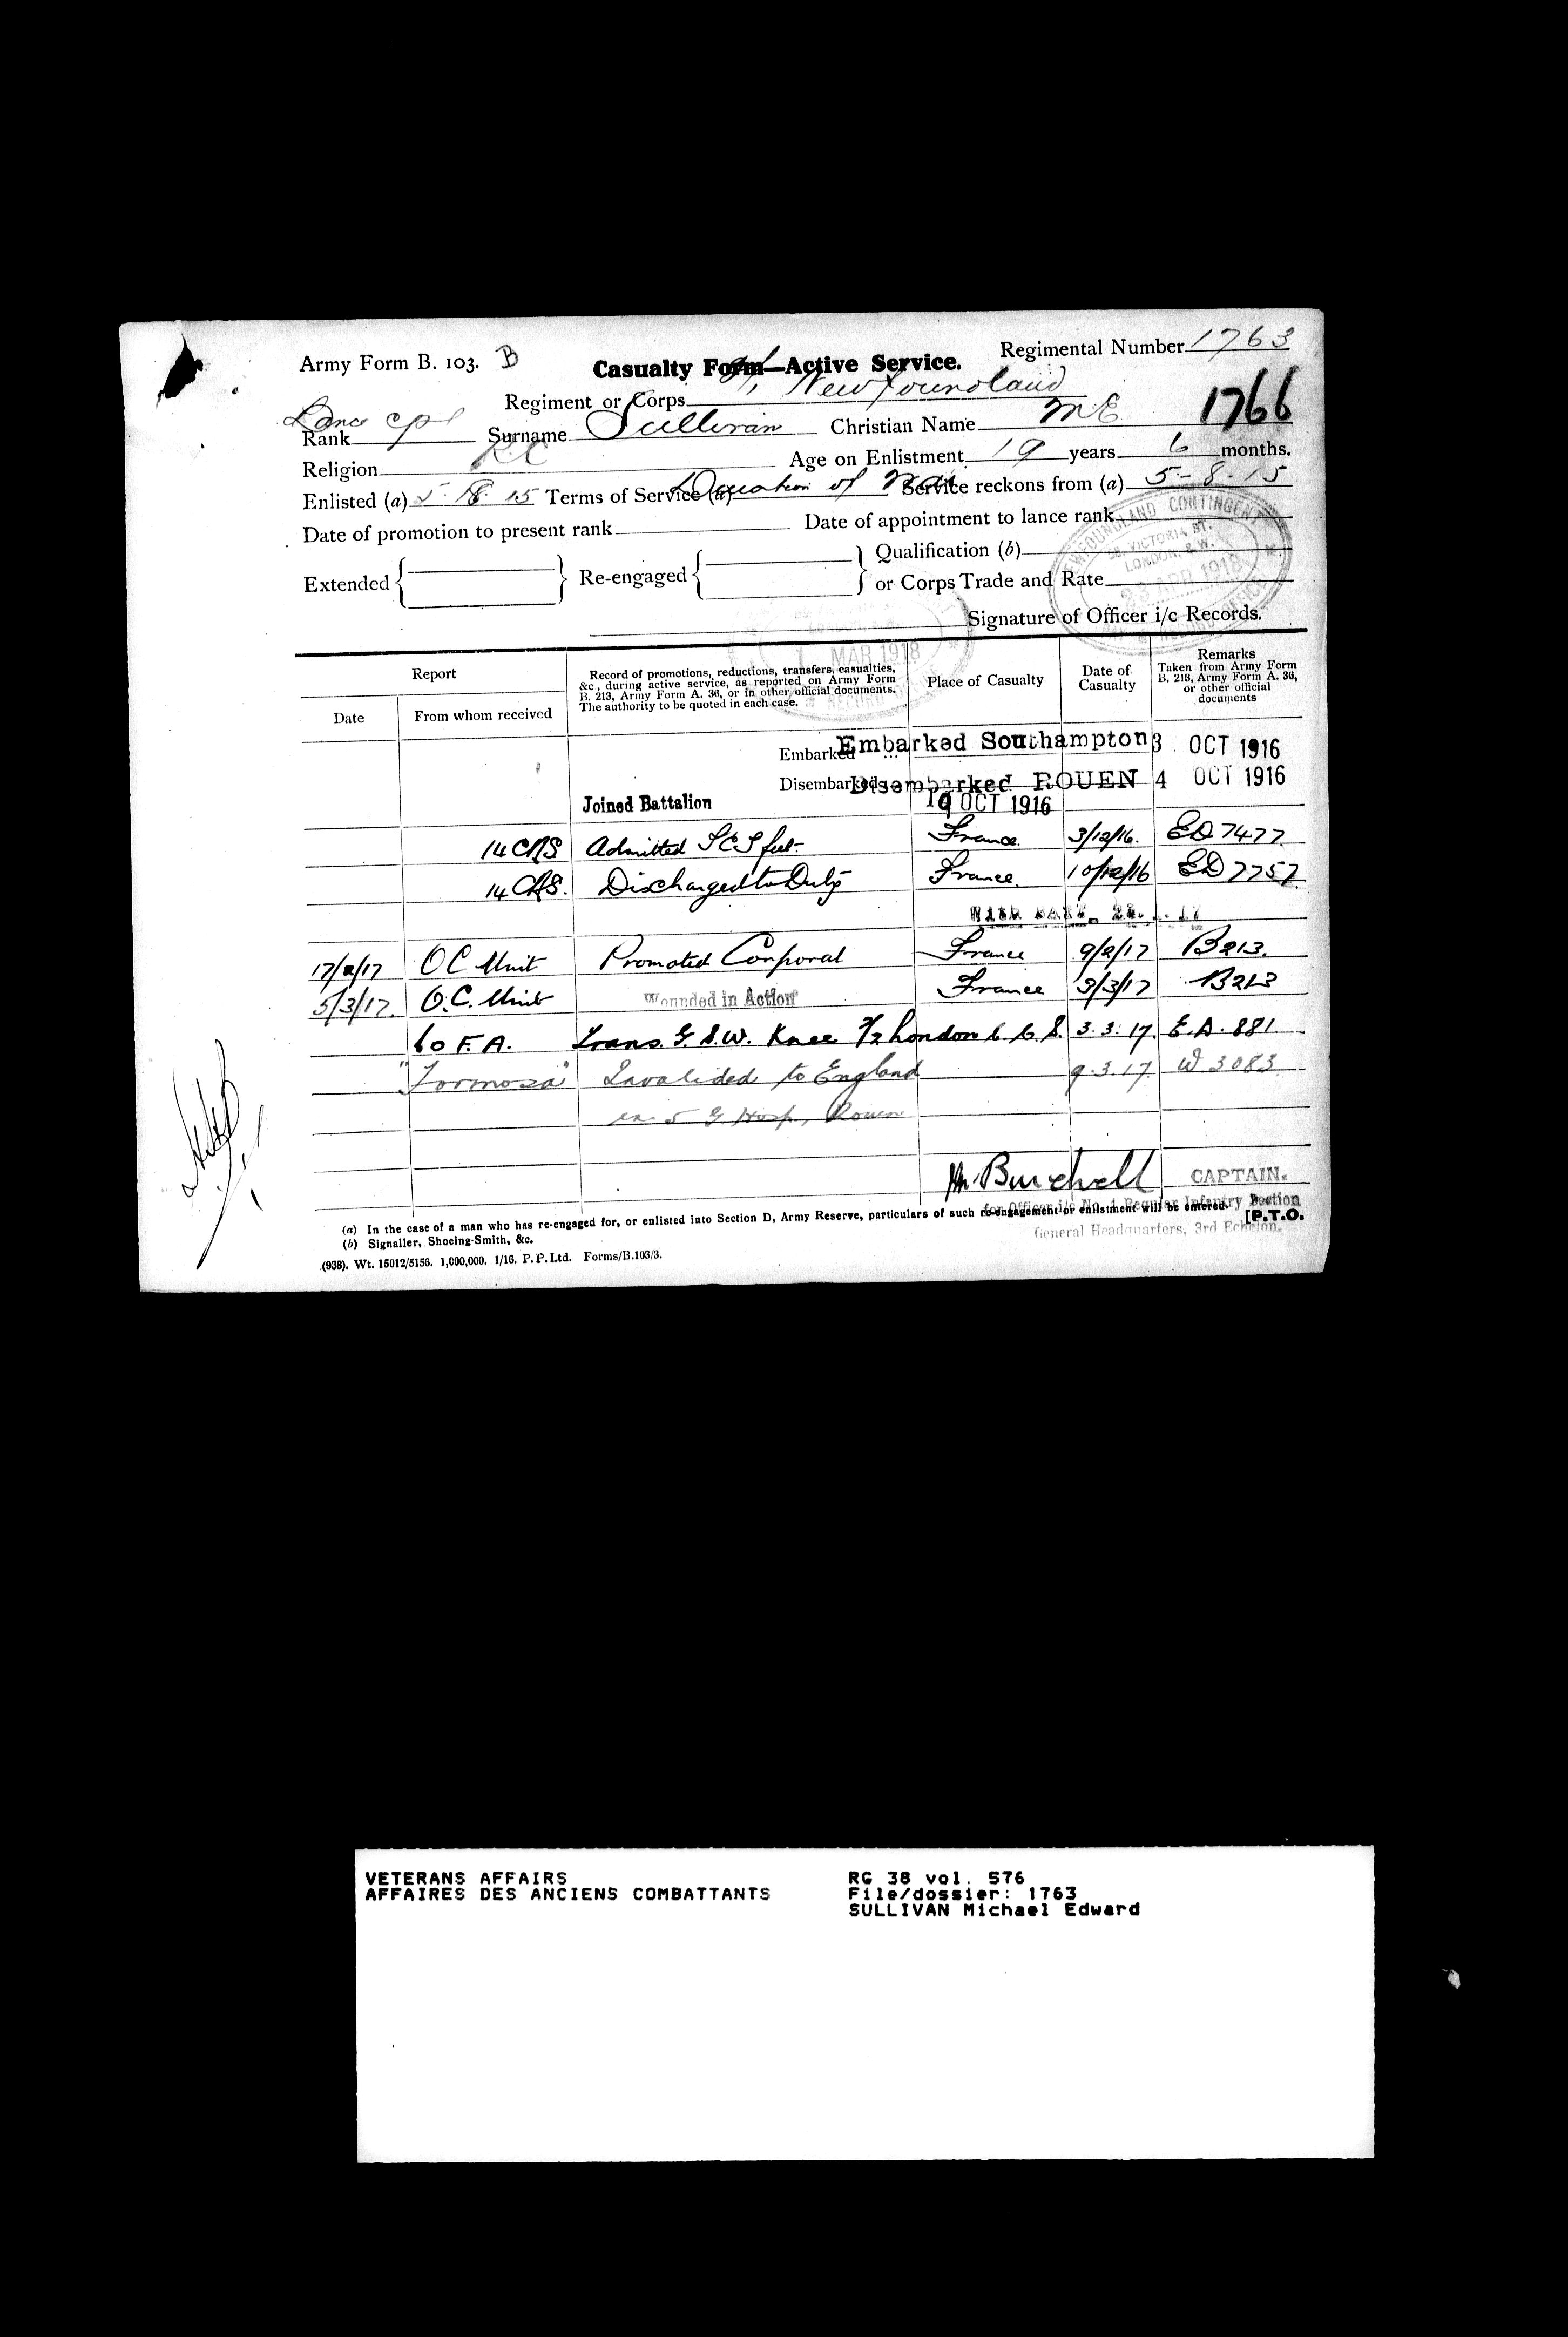 Army Form B. 103. B
Casualty Form—Active Service.
Regimental Number 1763
Regiment or Corps Newfoundland
1766
Rank Lance Cpl Surname Sullivan Christian Name M E
Religion R.C Age on Enlistment 19 years 6 months.
Enlisted (a) 5. 8. 15 Terms of Service (a) Duration of War Service reckons from (a) 5-8-15
Date of promotion to present rank Date of appointment to lance rank
Extended Re-engaged Qualification (b)
or Corps Trade and Rate
Signature of Officer i/c Records.
NEWFOUNDLAND CONTINGENT
58, VICTORIA ST.
LONDON. S.W.
23 APR 1918
MAR 1918
RECORD
Report
Date From whom received
Record of promotions, reductions, transfers, casualties, &c., during active service, as reported on Army Form B. 213, Army Form A. 36, or in other official documents. The authority to be quoted in each case.
Place of Casualty
Date of Casualty
Remarks Taken from Army Form B. 213, Army Form A. 36, or other official documents
Embarked ... Embarked Southampton 3 OCT 1916
Disembarked Disembarked ROUEN 4 OCT 1916
Joined Battalion 19 OCT 1916
14 CRS Admitted France 3/12/16. ED 7477
14 CRS. Discharged to Duty France 10/12/16 ED 7757
17/2/17 OC Unit Promoted Corporal France 9/2/17 B213.
5/3/17. O.C. Unit Wounded in Action France 3/3/17 B213
Trans. G.S.W. Knee 2/2 London C.C.S. 3.3.17. E.A. 881
"Formosa" Invalided to England 9.3.17 W 3083
ex. 5 G Hosp, Rouen
Burchell CAPTAIN.
for Officer i/c No. 1 Regular Infantry Section
General Headquarters, 3rd Echelon.
(a) In the case of a man who has re-engaged for, or enlisted into Section D, Army Reserve, particulars of such re-engagement or enlistment will be entered.
[P.T.O.
(b) Signaller, Shoeing-Smith, &c.
(938). Wt. 15012/5156. 1,000,000. 1/16. P.P.Ltd. Forms/B.103/3.
VETERANS AFFAIRS
AFFAIRES DES ANCIENS COMBATTANTS
RG 38 vol. 576
File/dossier: 1763
SULLIVAN Michael Edward